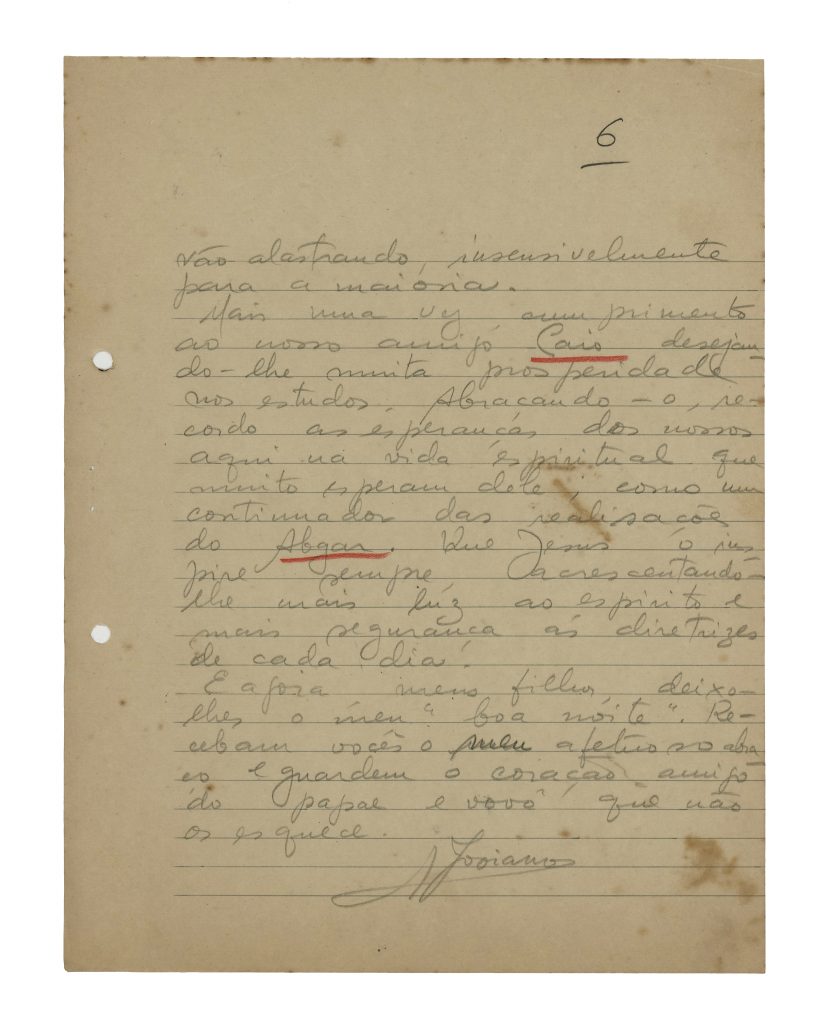 6
vão alastrando, insensivelmente
para a maioria.
Mais uma vez cumprimento
ao nosso amigo Caio desejan-
do-lhe muita prosperidade
nos estudos. Abraçando-o, re-
cordo as esperanças dos nossos
aqui na vida espiritual que
muito esperam dele, como um
continuador das realisações
do Abgar. Que Jesus o ins-
pire sempre, acrescentando-
lhe mais luz ao espirito e
mais segurança ás diretrizes
de cada dia.
E agora meus filhos, deixo-
lhes o meu "boa noite". Re-
cebam vocês o meu afetuoso abra-
ço e guardem o coração amigo
do papae e vovô que não
os esquece.